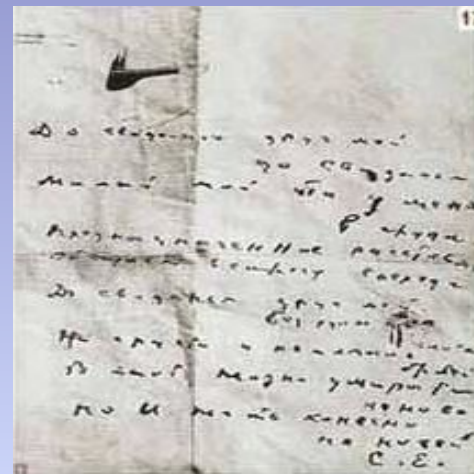 До свиданья друг мой
до свиданья
Милый мой ты у меня
в груди
Предназначенное
встречу впереди
До свиданья друг мой
без руки
Не грусти и не
В этой жизни умирать
не ново
но и жить конечно
не новей
С. Е.